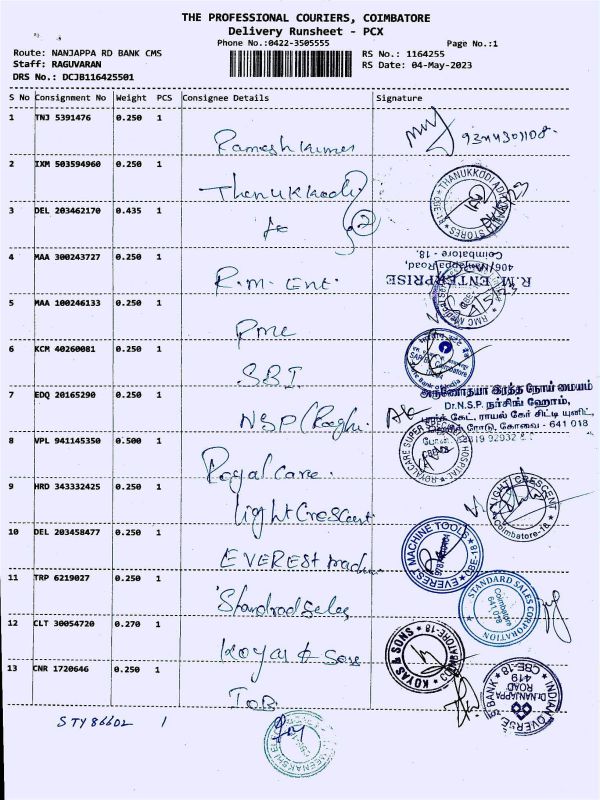 THE PROFESSIONAL COURIERS, COIMBATORE
Delivery Runsheet - PCX
Phone No.:0422-3505555 Page No.:1
Route: NANJAPPA RD BANK CMS RS No.: 1164255
Staff: RAGUVARAN RS Date: 04-May-2023
DRS No.: DCJB116425501
S No Consignment No Weight PCS Consignee Details Signature
1 TNJ 5391476 0.250 1
Ramesh kumar
2 IXM 503594960 0.250 1
Thanukkodi
THANUKKODI STORES
3 DEL 203462170 0.435 1
2
4 MAA 300243727 0.250 1
R.M. Ent.
R.M. ENTERPRISE
406, Nanjappa Road,
Coimbatore - 18.
5 MAA 100246133 0.250 1
6 KCM 40260081 0.250 1
SBI
7 EDQ 20165290 0.250 1
NSP
அருணோதயா இரத்த நோய் மையம்
Dr.N.S.P. நர்சிங் ஹோம்,
கேட், ராயல் கேர் சிட்டி யுனிட்,
ரோடு, கோவை - 641 018
8 VPL 941145350 0.500 1
Royal care.
ROYALCARE SUPER SPECIALITY HOSPITAL
9 HRD 343332425 0.250 1
light Crescent
LIGHT CRESCENT
Coimbatore-18
10 DEL 203458477 0.250 1
EVEREST
EVEREST MACHINE TOOLS CBE-18
11 TRP 6219027 0.250 1
Standrod Sales
STANDARD SALES CORPORATION
Coimbatore
641 018
12 CLT 30054720 0.270 1
Koyas & Sons
KOYAS & SONS COIMBATORE-18
13 CNR 1720646 0.250 1
IOB
INDIAN OVERSEAS BANK
Dr.NANJAPPA
ROAD
419
CBE-18
STY 86602 1